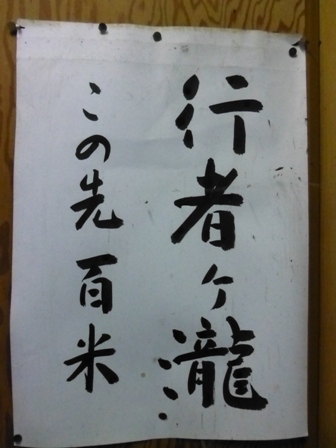 行者ケ瀧
この先百米